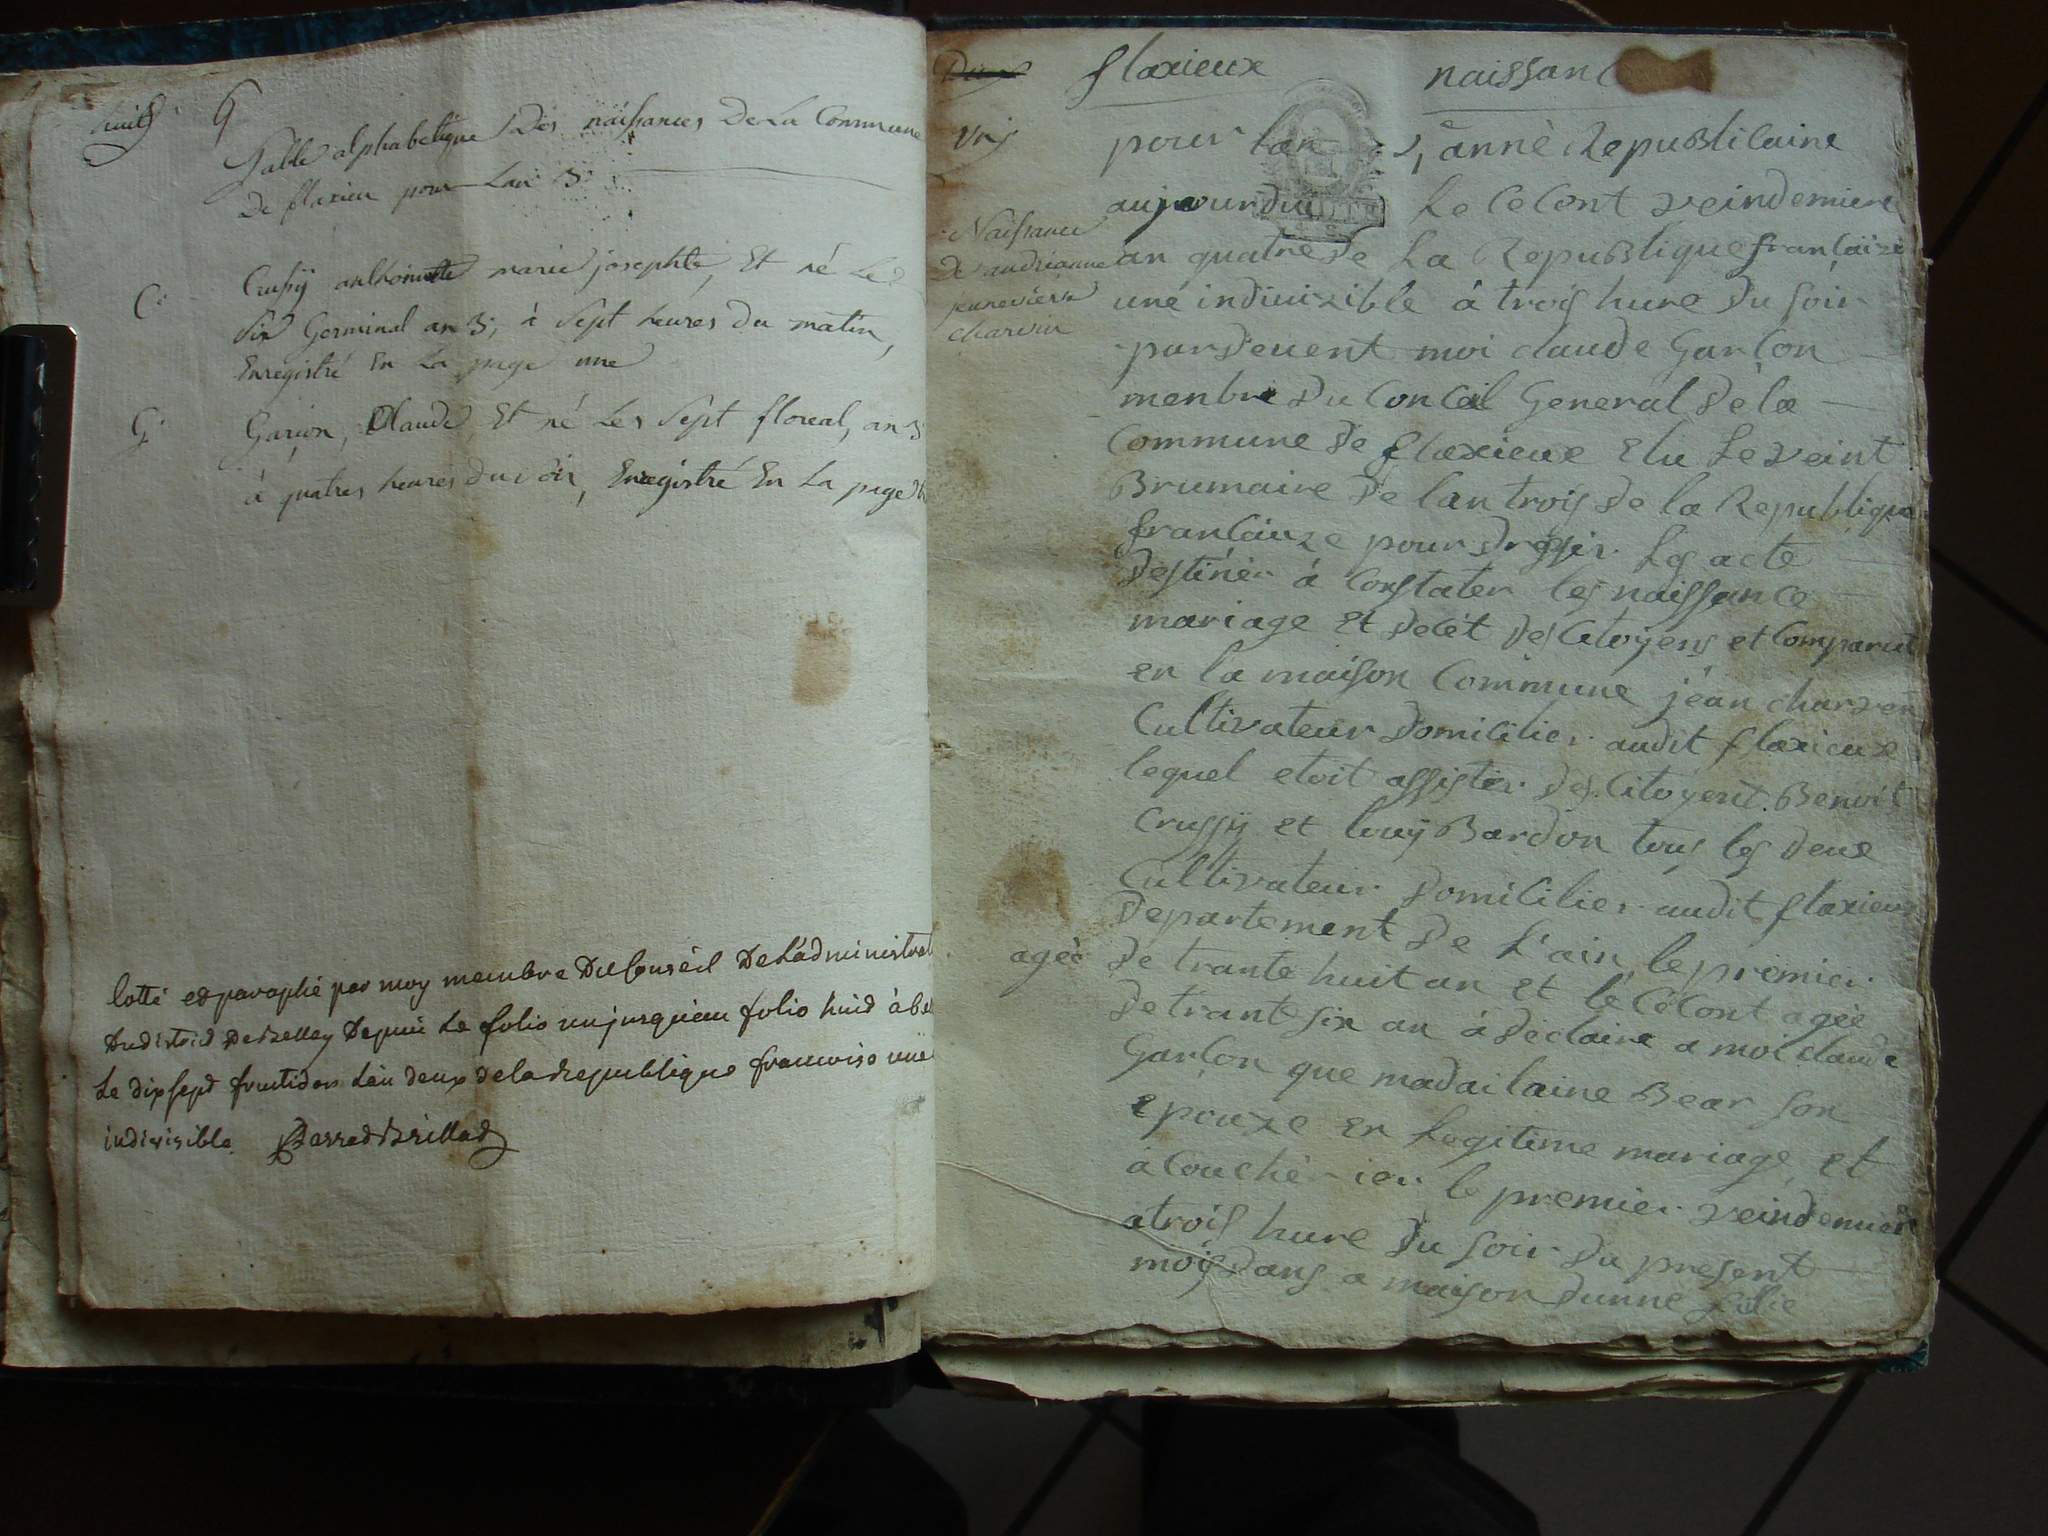 huit
Table alphabetique Des naissances De La Commune
De flaxieu pour Lan 3
C. Crussÿ anthoinette marie josephte, Et né Le
Six Germinal an 3, à Sept heures du matin,
Enregistré En La page une
G. Garçon, Claude, Et né Le Sept floreal, an 3
à quatres heures du soir, Enregistré En La page
Cotté et paraphé par moy membre Du Conseil De L'administrat
Du district De Belley Depuis Le folio un jusqu'au folio huit à bel
Le dix sept fructidor L'an deux de la Republique francoise une
indivisible.
flaxieux naissan
pour lan anné Republicaine
Naissance
De andrianne
jenevieve
charvin
aujourdui Le Cecont veindemiere
an quatre De La Republique francaize
une indivizible à trois hure Du soir
pardevent moi claude Garçon
menbre Du Conceil General De la
Commune De flaxieux Elu Le veint
Brumaire De lan trois De la Republique
francaize pour dresser Les acte
Destinér à Constater les naissance
mariage Et decét Des Citoyens et Comparut
en la maison Commune jéan charven
Cultivateur Domicilier audit flaxieux
lequel etoit assister Des Citoyent Benoit
Crussÿ et louÿ Bardon tous les deux
Cultivateur Domicilier audit flaxieux
Departement De L'ain, le premier
ageé De trante huit an Et le Cécont agée
De trante six an à Déclaire a moi claude
Garçon que madailaine Bear son
epouze En Legitime mariage Et
acouché ier le premier veindemiere
a trois hure Du soir du present
mois Dans a maison Dunne fillie